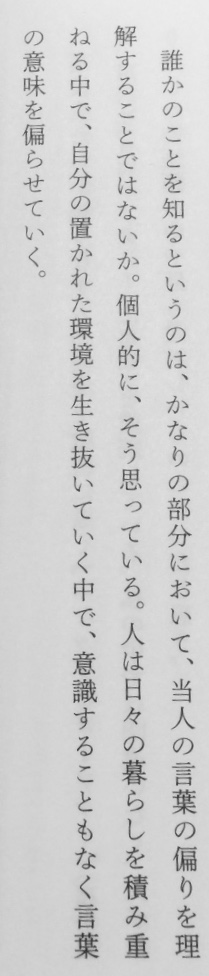 誰かのことを知るというのは、かなりの部分において、当人の言葉の偏りを理
解することではないか。個人的に、そう思っている。人は日々の暮らしを積み重
ねる中で、自分の置かれた環境を生き抜いていく中で、意識することもなく言葉
の意味を偏らせていく。